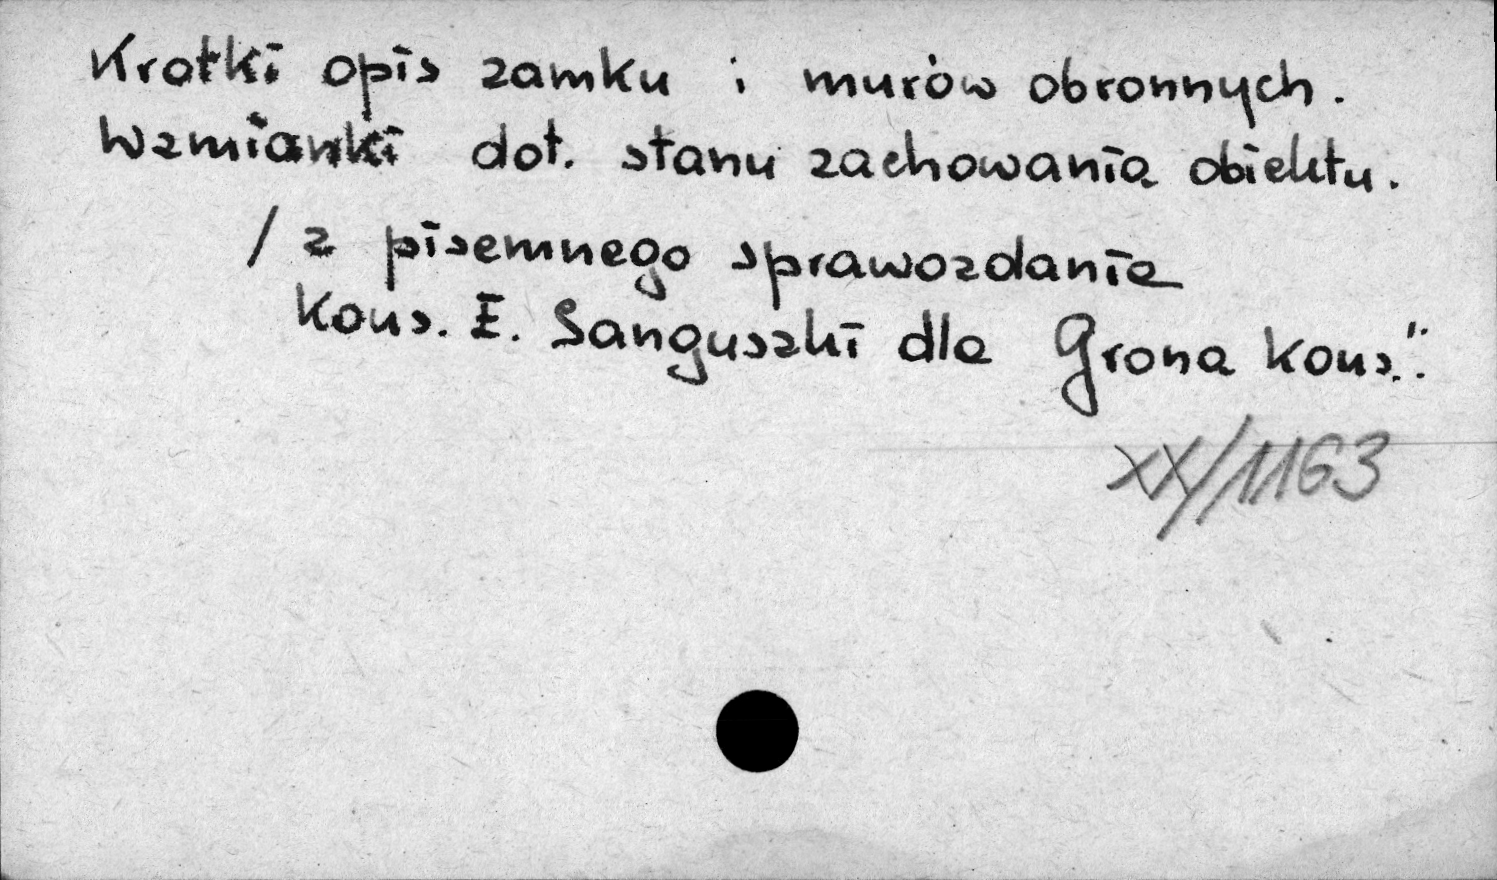 Krotki opis zamku i murów obronnych.
Wzmianki dot. stanu zachowania obiektu.
/ z pisemnego sprawozdania
Kons. E. Sanguszki dla Grona Kons.".
XX/1163